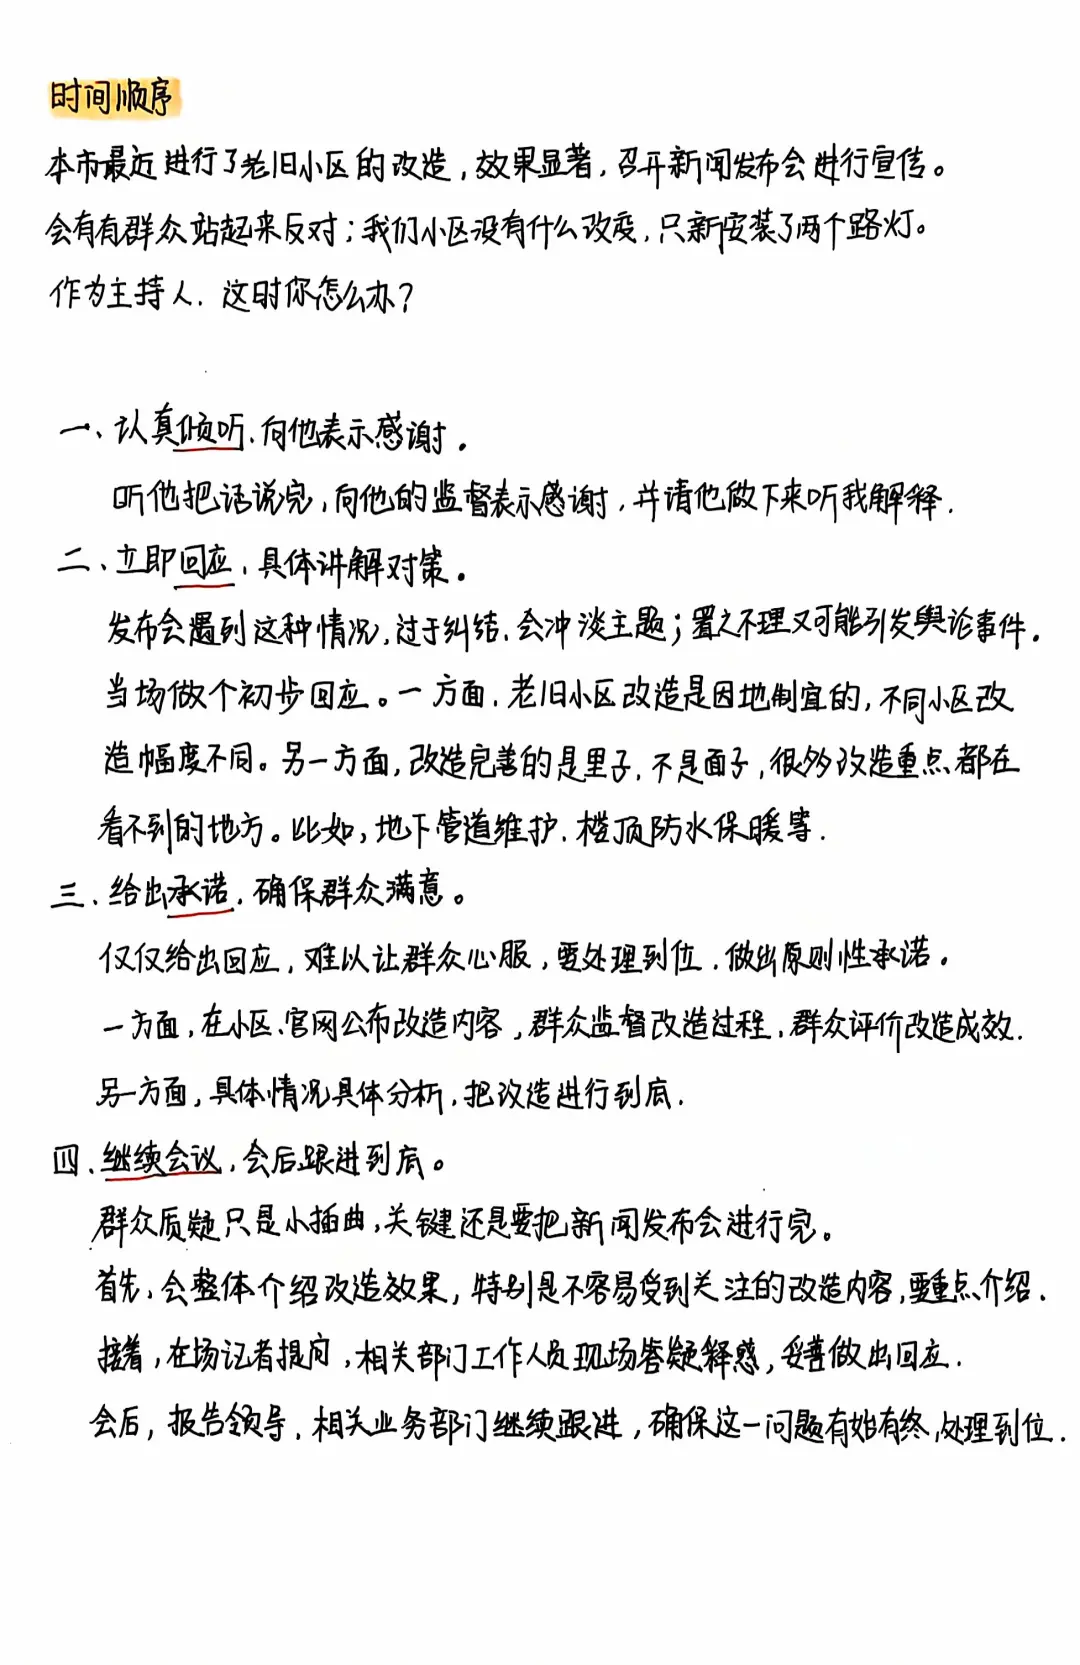 时间顺序
本市最近进行了老旧小区的改造，效果显著，召开新闻发布会进行宣传。
会有有群众站起来反对：我们小区没有什么改变，只新安装了两个路灯。
作为主持人，这时你怎么办？
一、认真倾听，向他表示感谢。
听他把话说完，向他的监督表示感谢，并请他做下来听我解释.
二、立即回应，具体讲解对策。
发布会遇到这种情况，过于纠结，会冲淡主题；置之不理又可能引发舆论事件.
当场做个初步回应。一方面，老旧小区改造是因地制宜的，不同小区改
造幅度不同。另一方面，改造完善的是里子，不是面子，很多改造重点都在
看不到的地方。比如，地下管道维护、楼顶防水保暖等.
三、给出承诺，确保群众满意。
仅仅给出回应，难以让群众心服，要处理到位，做出原则性承诺.
一方面，在小区、官网公布改造内容，群众监督改造过程，群众评价改造成效.
另一方面，具体情况具体分析，把改造进行到底.
四、继续会议，会后跟进到底。
群众质疑只是小插曲，关键还是要把新闻发布会进行完。
首先，会整体介绍改造效果，特别是不容易受到关注的改造内容，要重点介绍.
接着，在场记者提问，相关部门工作人员现场答疑释惑，妥善做出回应.
会后，报告领导，相关业务部门继续跟进，确保这一问题有始有终，处理到位.